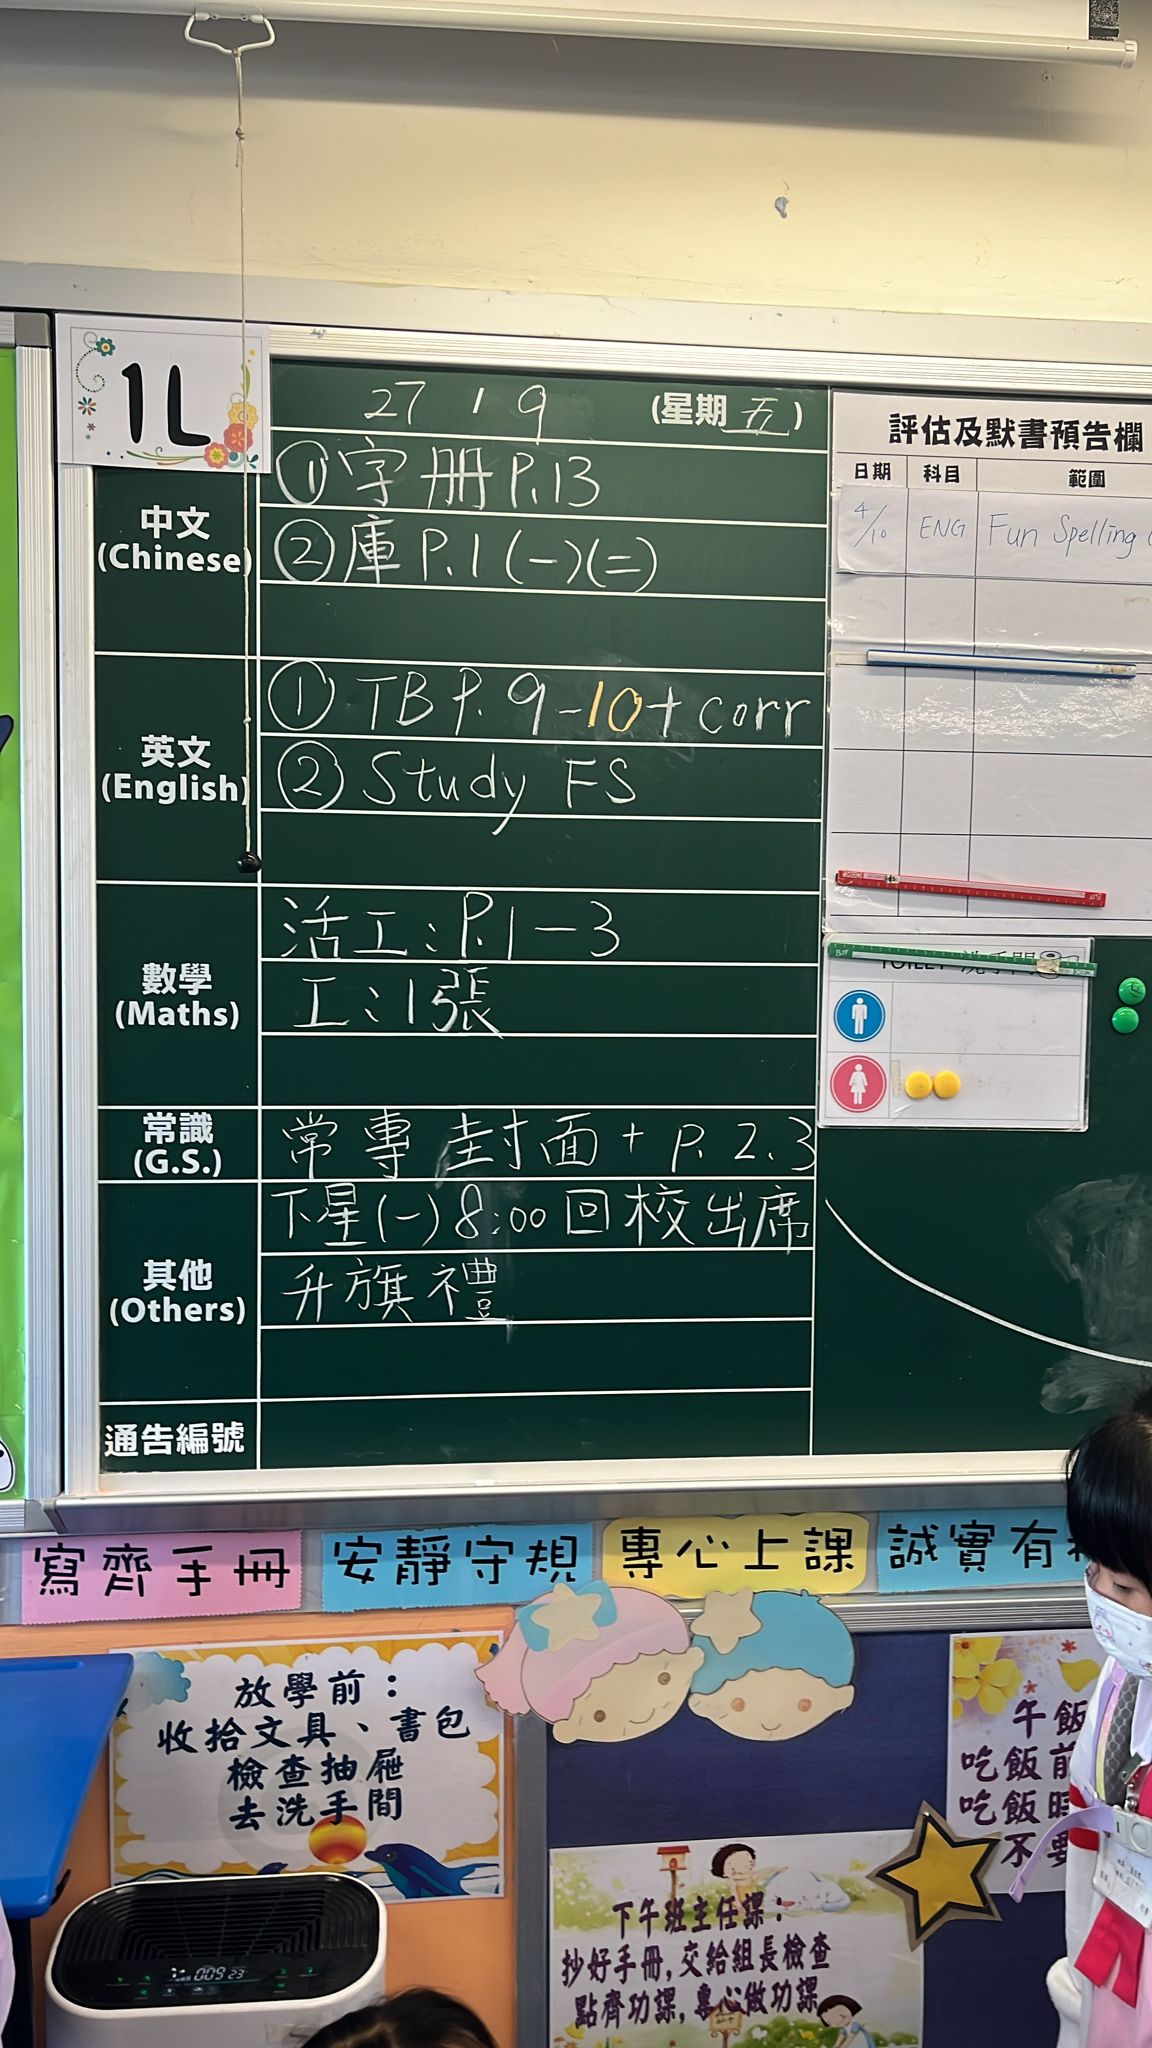 1L
27 / 9 (星期五)
中文
(Chinese)
① 字册 P.13
② 庫 P.1 (一)(二)
英文
(English)
① TB P. 9-10 + corr
② Study FS
數學
(Maths)
活工：P.1-3
工：1張
常識
(G.S.)
常專 封面 + P. 2.3
其他
(Others)
下星(一) 8:00 回校出席
升旗禮
通告編號
評估及默書預告欄
日期 科目 範圍
4/10 ENG Fun Spelling
TOILET 洗手間
寫齊手冊
安靜守規
專心上課
誠實有
放學前：
收拾文具、書包
檢查抽屜
去洗手間
下午班主任課：
抄好手冊，交給組長檢查
點齊功課，專心做功課
午飯
吃飯前
吃飯時
不要
009 23